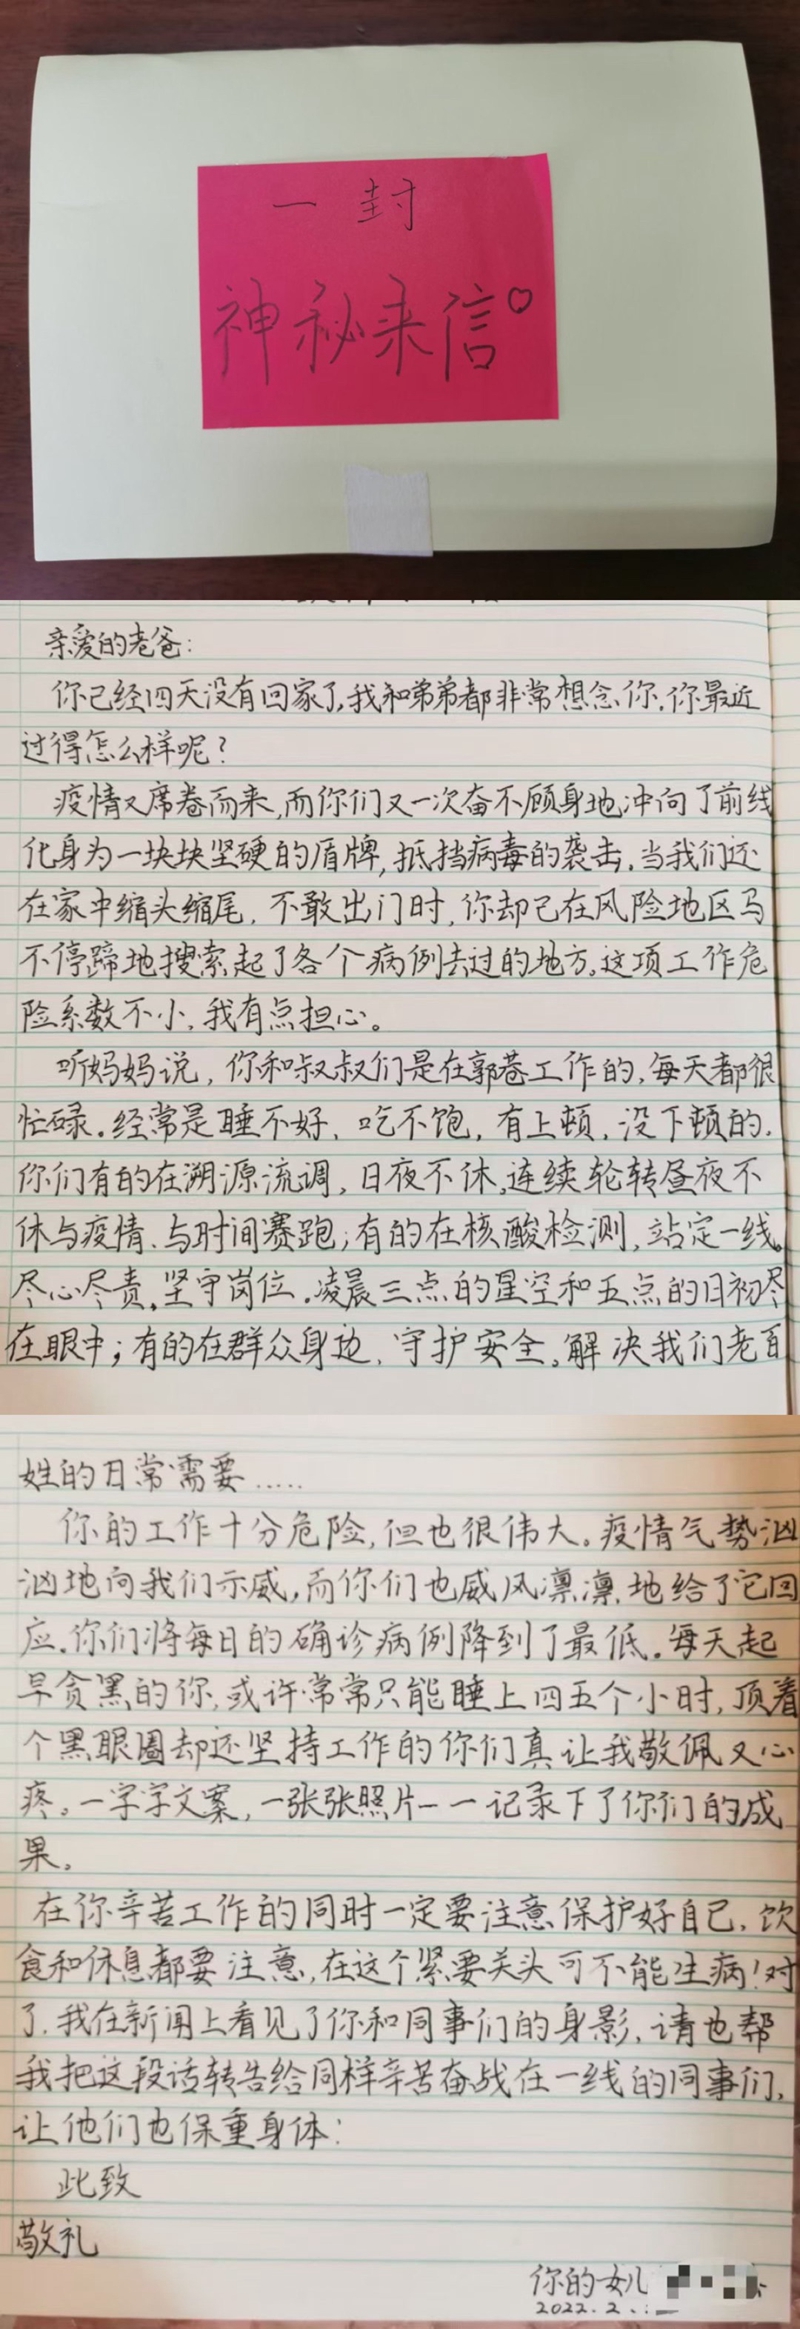 一封
神秘来信
亲爱的老爸:
你已经四天没有回家了,我和弟弟都非常想念你.你最近
过得怎么样呢?
疫情又席卷而来,而你们又一次奋不顾身地冲向了前线
化身为一块块坚硬的盾牌,抵挡病毒的袭击.当我们还
在家中缩头缩尾,不敢出门时,你却已在风险地区马
不停蹄地搜索起了各个病例去过的地方。这项工作危
险系数不小,我有点担心。
听妈妈说,你和叔叔们是在郭巷工作的,每天都很
忙碌.经常是睡不好、吃不饱,有上顿,没下顿的.
你们有的在溯源流调,日夜不休,连续轮转昼夜不
休与疫情、与时间赛跑;有的在核酸检测,站定一线。
尽心尽责.坚守岗位.凌晨三点的星空和五点的日初尽
在眼中;有的在群众身边,守护安全。解决我们老百
姓的日常需要.....
你的工作十分危险,但也很伟大。疫情气势汹
汹地向我们示威,而你们也威风凛凛地给了它回
应.你们将每日的确诊病例降到了最低.每天起
早贪黑的你,或许常常只能睡上四五个小时,顶着
个黑眼圈却还坚持工作的你们真让我敬佩又心
疼。一字字文案,一张张照片一一记录下了你们的成
果。
在你辛苦工作的同时一定要注意保护好自己,饮
食和休息都要注意,在这个紧要关头可不能生病!对
了,我在新闻上看见了你和同事们的身影,请也帮
我把这段话转告给同样辛苦奋战在一线的同事们,
让他们也保重身体!
此致
敬礼
你的女儿
2022.2.